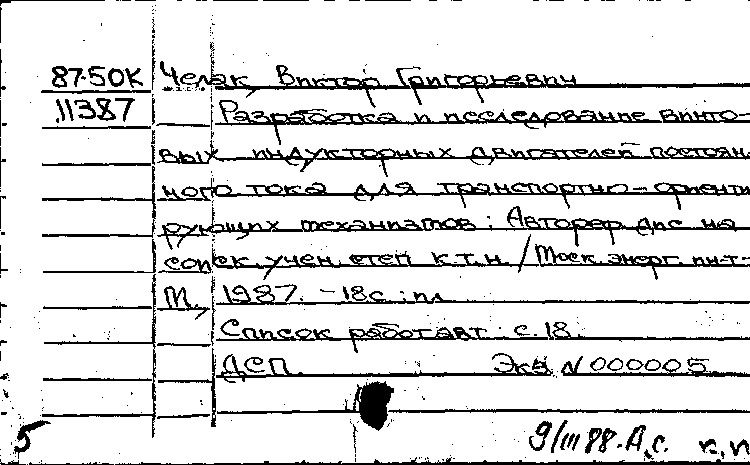 87-50К Челак, Виктор Григорьевич
11387 Разработка и исследование винто-
вых индукторных двигателей постоян-
ного тока для транспортно-ориенти
рующих механизмов: Автореф дис на
соиск. учен. степ к.т.н. / Моск. энерг. ин-т.-
М., 1987. - 18с.: ил
Список работ авт. с. 18.
ДСП. Экз N 000005
5 9/III 88. А,с. к.п